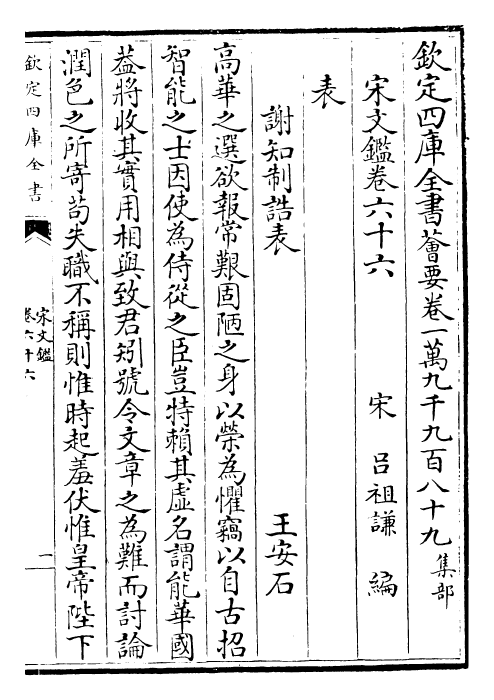 欽定四庫全書薈要卷一萬九千九百八十九 集部
宋文鑑卷六十六 宋 呂祖謙 編
表
謝知制誥表 王安石
高華之選欲報常艱固陋之身以榮為懼竊以自古招
智能之士因使為侍從之臣豈特賴其虛名謂能華國
葢將收其實用相與致君矧號令文章之為難而討論
潤色之所寄苟失職不稱則惟時起羞伏惟皇帝陛下
欽定四庫全書
宋文鑑
卷六十六
一